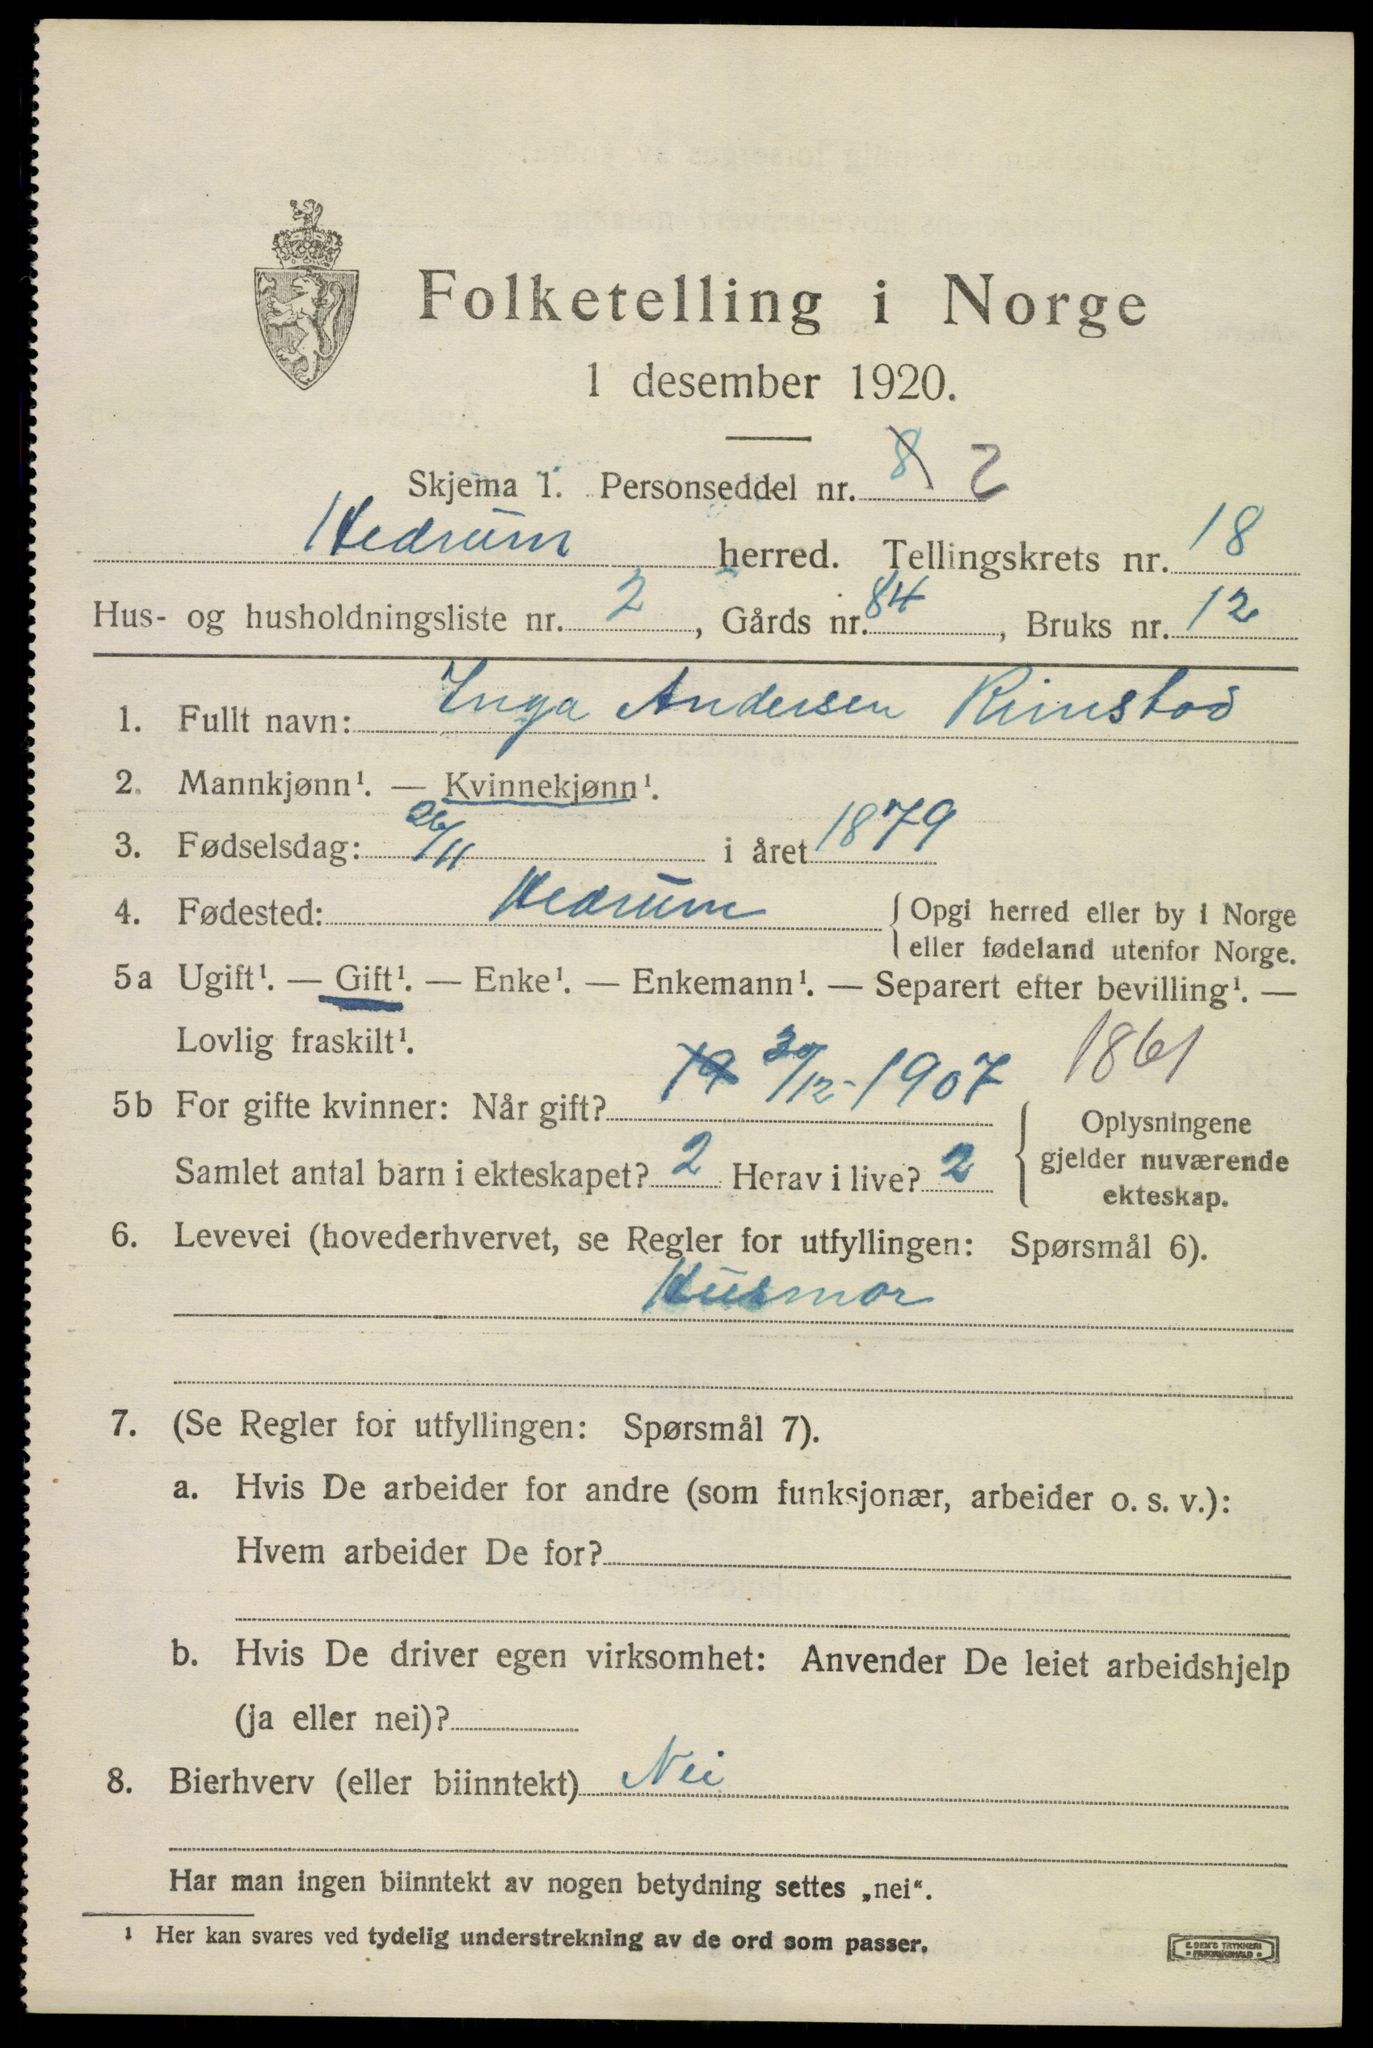 Folketelling i Norge
1 desember 1920.
Skjema 1. Personseddel nr. 8 2
Hedrum herred. Tellingskrets nr. 18
Hus- og husholdningsliste nr. 2, Gårds nr. 84, Bruks nr. 12
1. Fullt navn: Inga Andersen Rimstad
2. Mannkjønn¹. — Kvinnekjønn¹.
3. Fødselsdag: 26/11 i året 1879
4. Fødested: Hedrum { Opgi herred eller by i Norge
eller fødeland utenfor Norge.
5a Ugift¹. — Gift¹. — Enke¹. — Enkemann¹. — Separert efter bevilling¹. —
Lovlig fraskilt¹.
1861
5b For gifte kvinner: Når gift? 19 30/12-1907
Samlet antal barn i ekteskapet? 2 Herav i live? 2
{ Oplysningene
gjelder nuværende
ekteskap.
6. Levevei (hovederhvervet, se Regler for utfyllingen: Spørsmål 6).
Husmor
7. (Se Regler for utfyllingen: Spørsmål 7).
a. Hvis De arbeider for andre (som funksjonær, arbeider o. s. v.):
Hvem arbeider De for?
b. Hvis De driver egen virksomhet: Anvender De leiet arbeidshjelp
(ja eller nei)?
8. Bierhverv (eller biinntekt) Nei
Har man ingen biinntekt av nogen betydning settes „nei“.
1 Her kan svares ved tydelig understrekning av de ord som passer.